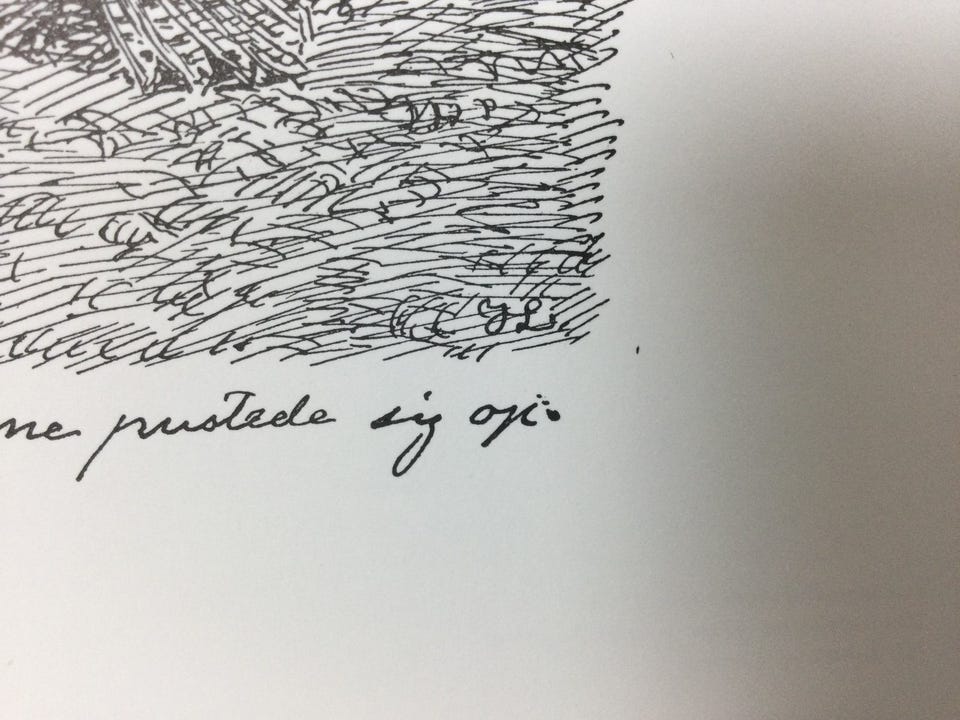 JL
ne pustede sig op.